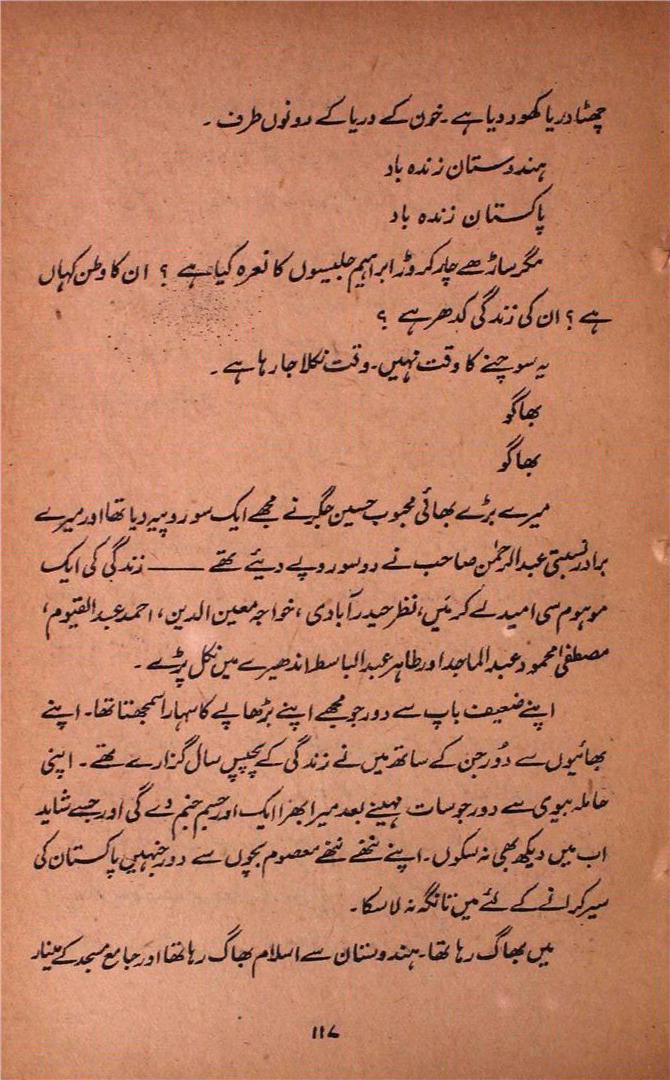 چھٹا دریا کھود دیا ہے۔ خون کے دریا کے دونوں طرف۔
ہندوستان زندہ باد
پاکستان زندہ باد
مگر ساڑھے چار کروڑ ابراہیم جلیسوں کا نعرہ کیا ہے؟ ان کا وطن کہاں
ہے؟ ان کی زندگی کدھر ہے؟
یہ سوچنے کا وقت نہیں۔ وقت نکلا جا رہا ہے۔
بھاگو
بھاگو
میرے بڑے بھائی محبوب حسین جگر نے مجھے ایک سو روپیہ دیا تھا اور میرے
برادر نسبتی عبدالرحمٰن صاحب نے دو سو روپے دیئے تھے ——— زندگی کی ایک
موہوم سی امید لے کر میں، نظر حیدرآبادی، خواجہ معین الدین، احمد عبدالقیوم،
مصطفیٰ محمود عبدالماجد اور طاہر عبدالباسط اندھیرے میں نکل پڑے۔
اپنے ضعیف باپ سے دور جو مجھے اپنے بڑھاپے کا سہارا سمجھتا تھا۔ اپنے
بھائیوں سے دُور جن کے ساتھ میں نے زندگی کے پچیس سال گزارے تھے۔ اپنی
حاملہ بیوی سے دور جو سات مہینے بعد میرا بھرا ایک اور جسم جنم دے گی اور جسے شاید
اب میں دیکھ بھی نہ سکوں۔ اپنے ننھے ننھے معصوم بچوں سے دور جنہیں پاکستان کی
سیر کرانے کے لئے میں تانگہ نہ لا سکا۔
میں بھاگ رہا تھا۔ ہندوستان سے اسلام بھاگ رہا تھا اور جامع مسجد کے مینار
۱۱۷